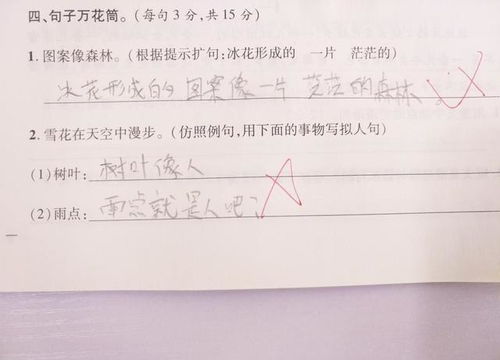 四、句子万花筒。(每句3分,共15分)
1.图案像森林。(根据提示扩句:冰花形成的 一片 茫茫的)
冰花形成的图案像一片 茫茫的森林。
2.雪花在天空中漫步。(仿照例句,用下面的事物写拟人句)
(1)树叶:树叶像人
(2)雨点:雨点就是人吧?